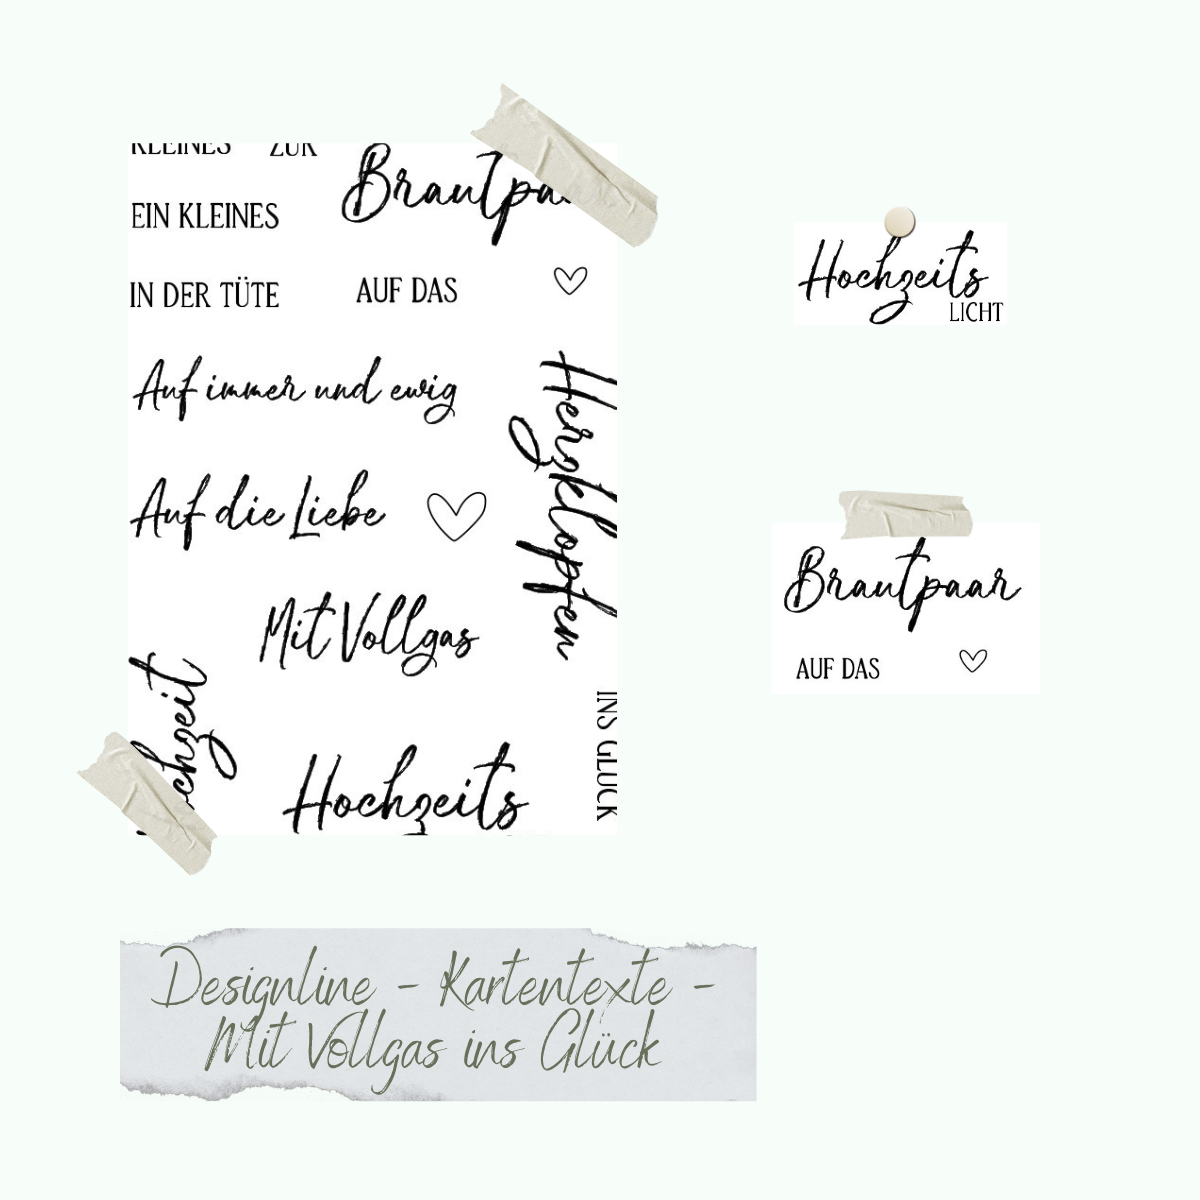 KLEINES ZUR
Brautpaar
EIN KLEINES
IN DER TÜTE
AUF DAS
Auf immer und ewig
Herzklopfen
Auf die Liebe
Mit Vollgas
Hochzeit
INS GLÜCK
Hochzeits
Hochzeits
LICHT
Brautpaar
AUF DAS
Designline - Kartentexte -
Mit Vollgas ins Glück